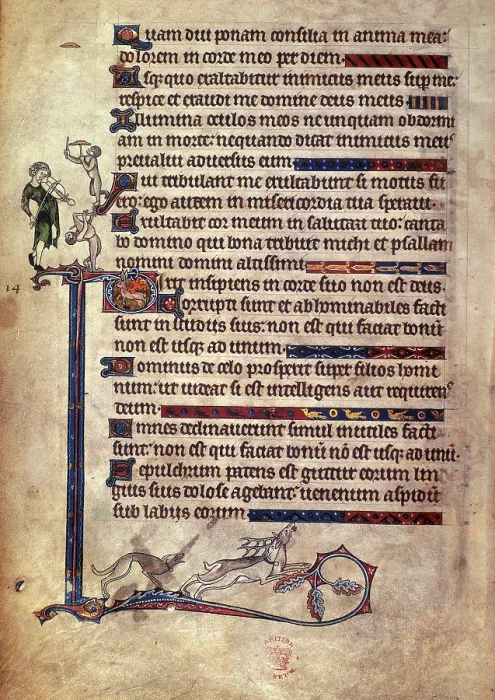 Quam diu ponam consilia in anima mea:
dolorem in corde meo per diem.
Usquequo exaltabitur inimicus meus super me:
respice et exaudi me domine deus meus
Illumina oculos meos ne unquam obdormi
am in morte: nequando dicat inimicus meus
prevalui adversus eum.
Qui tribulant me exultabunt si motus fu
ero: ego autem in misericordia tua speravi.
Exultabit cor meum in salutari tuo: canta
bo domino qui bona tribuit michi et psallam
nomini domini altissimi
14
Dixit insipiens in corde suo non est deus.
Corrupti sunt et abhominabiles facti
sunt in studiis suis: non est qui faciat bonū
non est usq; ad unum.
Dominus de celo prospexit super filios homi
num: ut videat si est intelligens aut requirens
deum.
Omnes declinaverunt simul inutiles facti
sunt: non est qui faciat bonū nō est usq; ad unū.
Sepulchrum patens est guttur eorum lin
guis suis dolose agebant: venenum aspidū
sub labijs eorum.